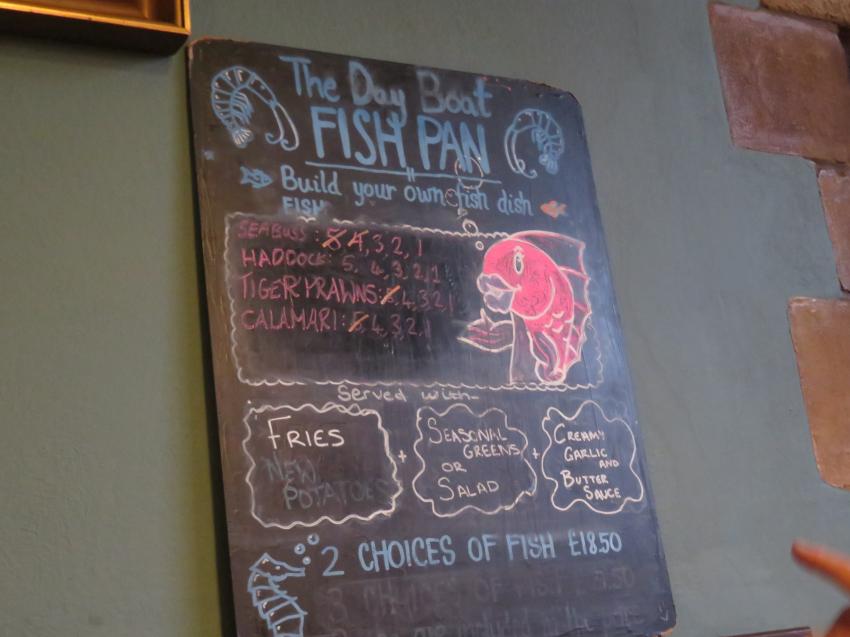 The Day Boat
FISH PAN
Build your own fish dish
FISH
SEABASS: 5 4, 3, 2, 1
HADDOCK: 5, 4, 3, 2, 1
TIGER PRAWNS: 5, 4, 3, 2, 1
CALAMARI: 5, 4, 3, 2, 1
Served with-
FRIES
NEW
POTATOES
+
SEASONAL
GREENS
OR
SALAD
+
CREAMY
GARLIC
AND
BUTTER
SAUCE
2 CHOICES OF FISH £18.50
3 CHOICES OF FISH